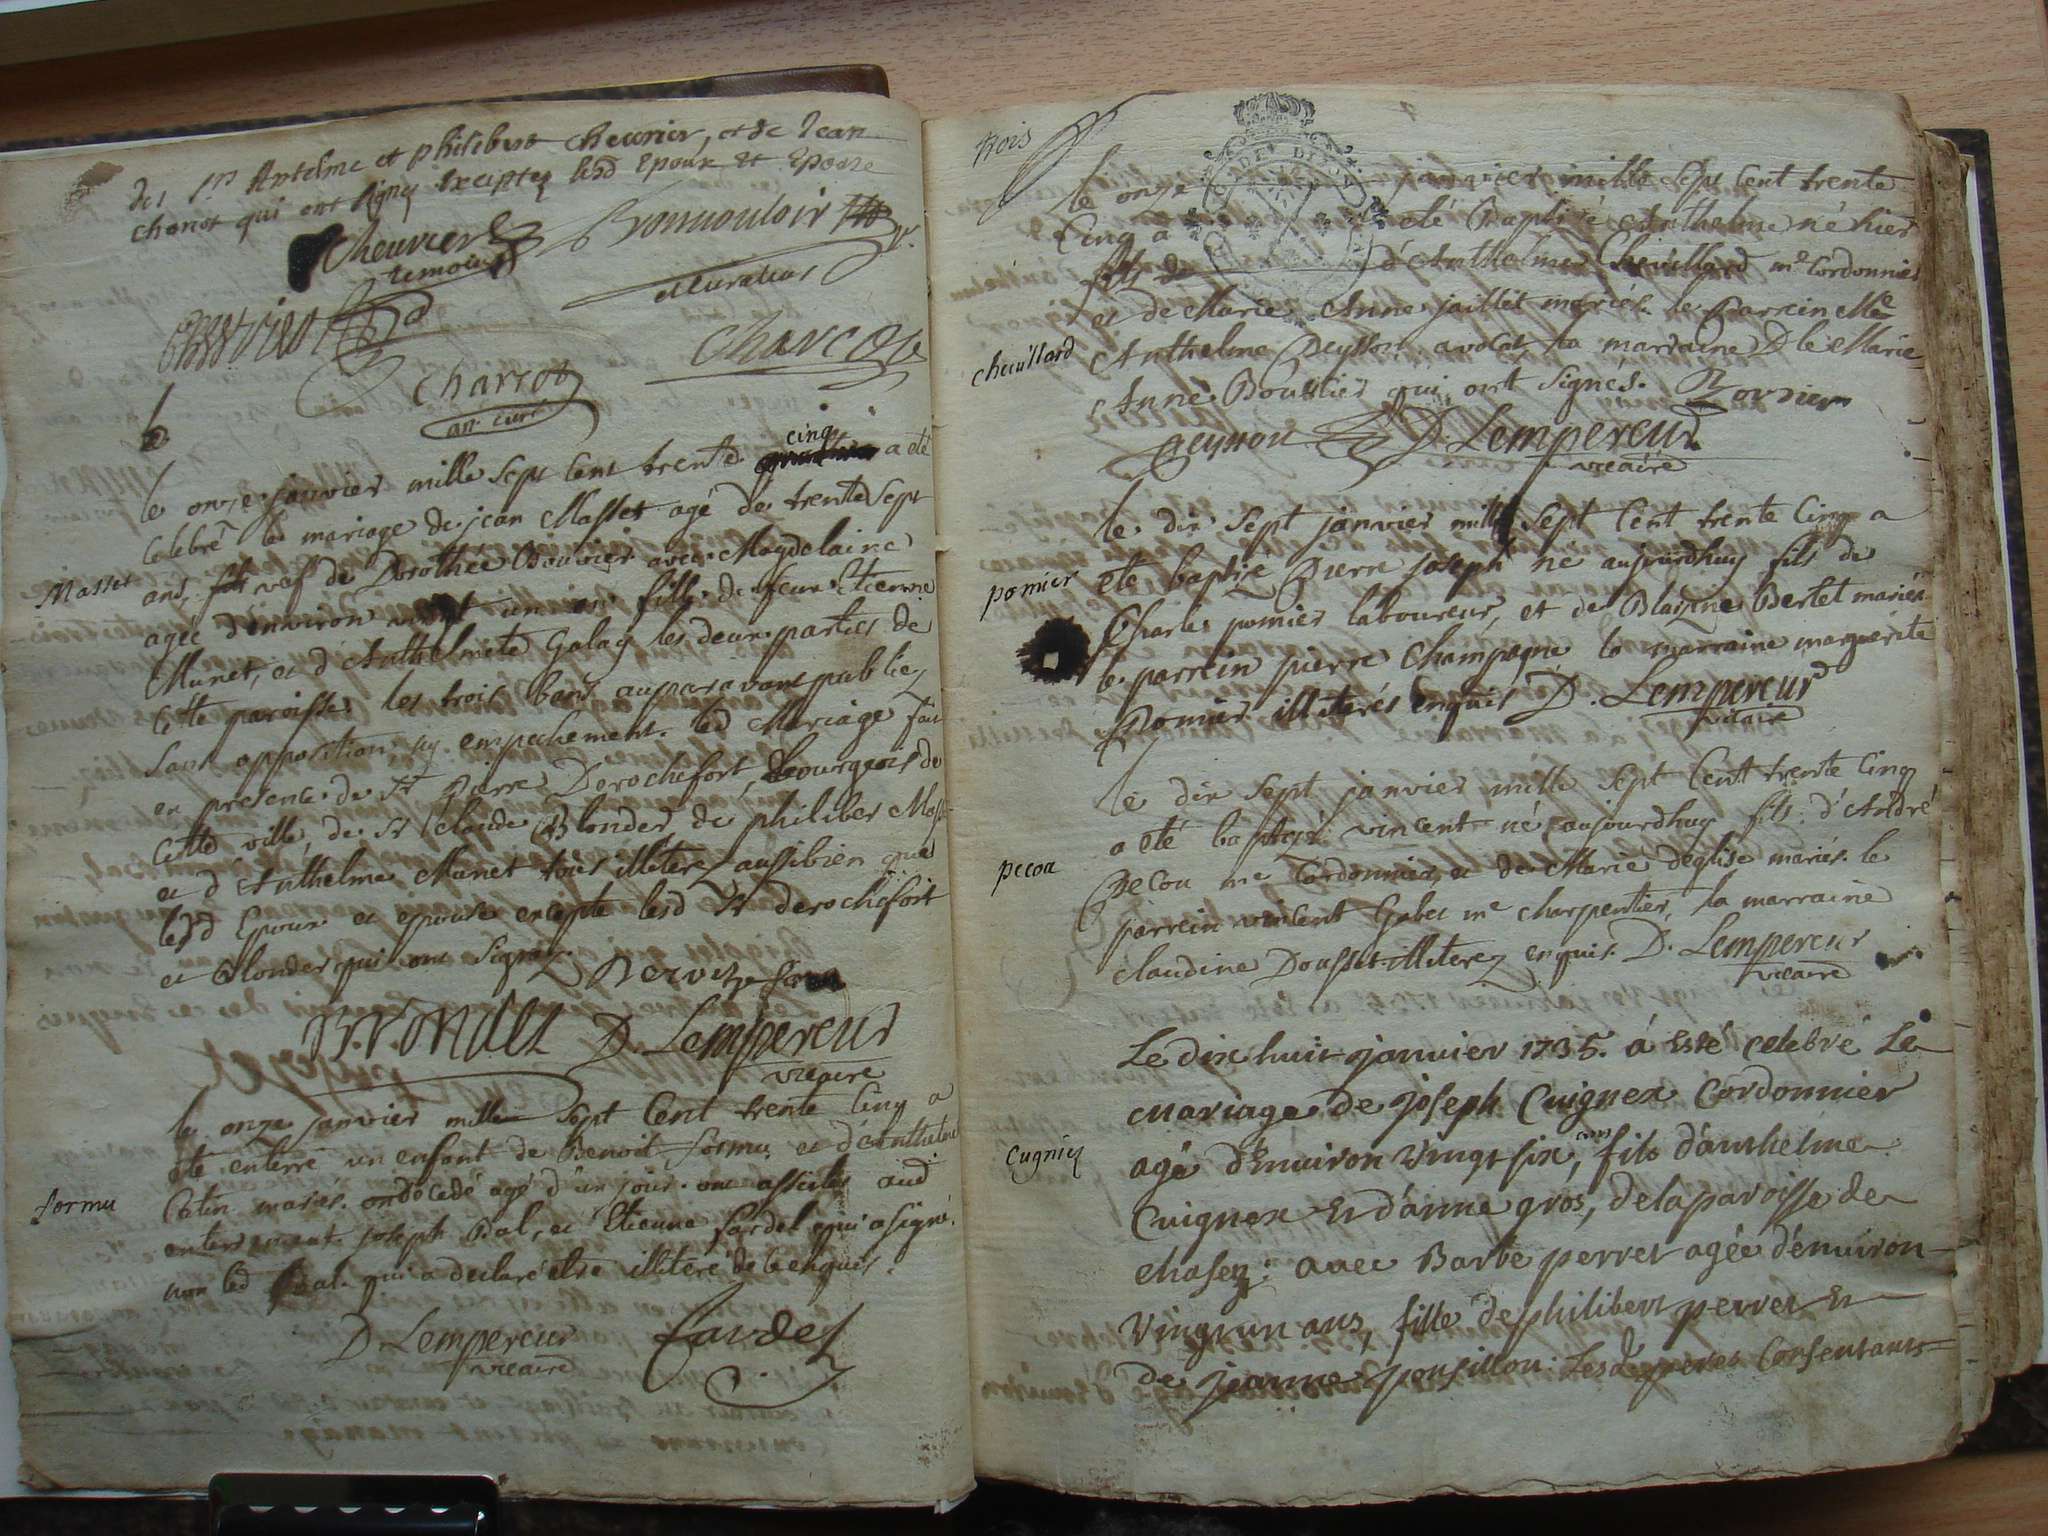 des Srs Antelme et philibert cheurier, et de Jean
chariot qui ont signez exceptez lesd Epoux et Epouse
cheuvrier
temoin
curateur
Charcot
charcot
arc. curé
cinq
le onze janvier mille sept cent trente a été
Celebré le mariage de jean Masset agé de trente sept
Masset
ans, vef de Dorothée Bouvier avec Magdelaine
agée d'environ vingt un an fille de feu Etienne
Munet, et d'Anthelmete Galay les deux parties de
cette paroisse les trois bans auparavant publiez
sans opposition ny empechement. led Mariage fait
en presence de Sr pierre Derochefort, Bourgeois de
cette ville, de Sr Claude Blondet, de philiber Mass-
et d'Anthelme Munet tous illiterez aussibien que
lesd Epoux et epouse excepté lesd Sr derochefort
et Blondet qui ont signez.
D. Lempereur
vicaire
le onze janvier mille sept Cent trente Cinq a
été enterré un enfant de Benoit formu, et d'Anthelme
Catin mariés. ondoié decedé agé d'un jour. ont assistés aud
formu
enterrement joseph Bal, et Etienne fardel qui a signé,
non led Bal. qui a declaré etre illiteré de ce enquis.
D. Lempereur
vicaire
fardel
trois
le onze janvier mille sept Cent trente
Cinq a eté Baptisé Anthelme né hier
fils de d'Anthelme Cheuillard me Cordonnier
et de Marie Anne jaillet mariés. le parrein Me
cheuillard
Anthelme Peysson avocat, la marraine Dlle Marie
Anne Boustier qui ont signés.
peysson D. Lempereur
vicaire
le dix sept janvier mille sept Cent trente Cinq a
pomier
eté baptizé pierre joseph né aujourdhuy fils de
Charles pomier laboureur, et de Blaizine Bertet mariés
le parrein pierre Champagne la marraine marguerite
Pomier illiterés enquis D. Lempereur
vicaire
le dix sept janvier mille sept Cent trente Cinq
a été baptizé vincent né aujourdhuy fils d'André
pecou
Pecou me Cordonnier, et de Marie deglise mariés. le
parrein vincent Gabet me charpentier, la marraine
claudine Dousset illiterez enquis. D. Lempereur
vicaire
Le dix huit janvier 1735. á esté celebré Le
Mariage de joseph Cuignex Cordonnier
Cugniez
agé d'Enuiron Vingt six ans, fils d'anthelme
Cuignex Et d'anne gros, de la paroisse de
chasey: avec Barbe perret agée d'enuiron
Vingt un ans, fille de philibert perret Et
de jeanne ponsillou. Les d peres Consentants